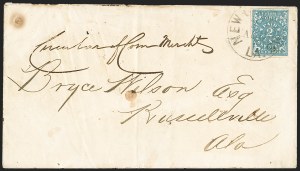 NEW
2
LA
Circular of Com Mercht
Bryce Wilson Esq
Russellville
Ala